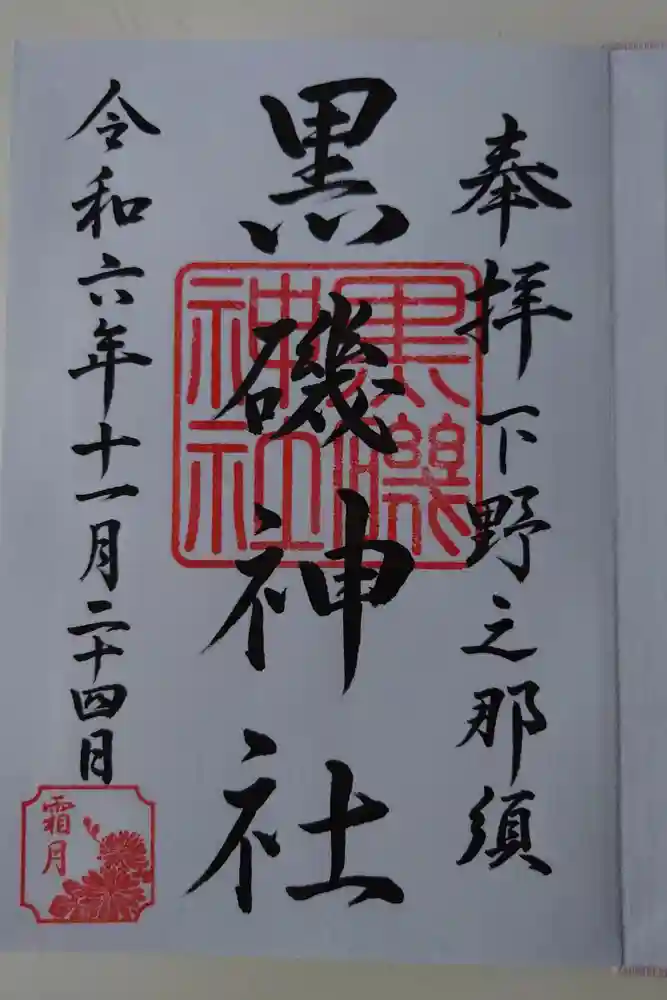 奉拝下野之那須
黒磯神社
黒磯
神社
令和六年十一月二十四日
霜月